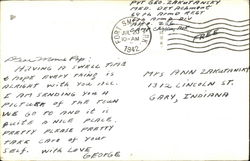 PVT GEO. ZAKUTANSKY
MED. DETACHMENT
ARMD REGT
ARMD DIV
FREE
1942
Dear Mom & Pop:
HAVING A SWELL TIME
& HOPE EVERY THING IS
ALRIGHT WITH YOU ALL.
I AM SENDING YOU A
PICTURE OF THE TOWN
WE GO TO AND IT IS
QUITE A NICE PLACE.
PRETTY PLEASE PRETTY
TAKE CARE OF YOUR
SELF. WITH LOVE
GEORGE
MRS ANN ZAKUTANSKY
1312 LINCOLN ST.
GARY, INDIANA